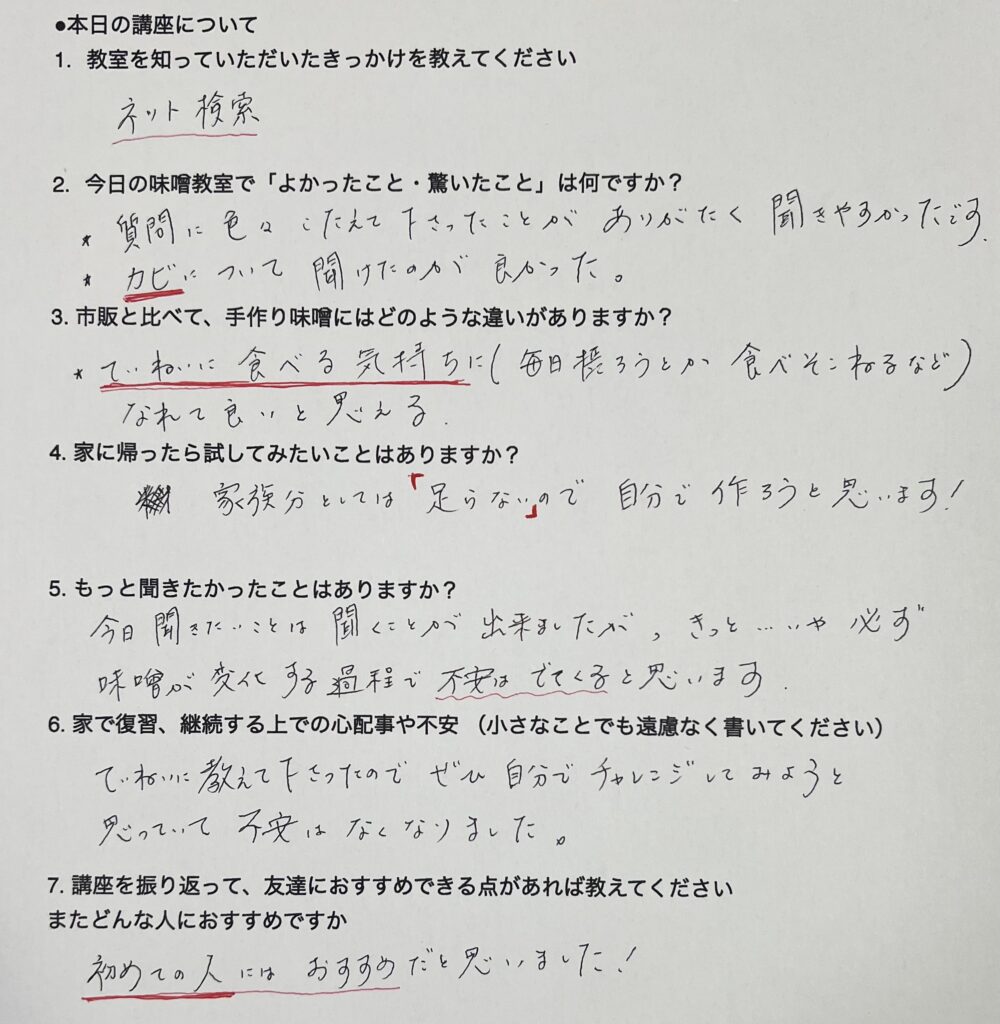 ●本日の講座について
1. 教室を知っていただいたきっかけを教えてください
ネット検索
2. 今日の味噌教室で「よかったこと・驚いたこと」は何ですか？
* 質問に色々こたえて下さったことが ありがたく 聞きやすかったです.
* カビについて 聞けたのが 良かった。
3. 市販と比べて、手作り味噌にはどのような違いがありますか？
* ていねいに 食べる 気持ちに(毎日摂ろうとか 食べそこねるなど)
なれて良いと思える.
4. 家に帰ったら試してみたいことはありますか？
家族分としては「足らない」ので 自分で 作ろうと思います！
5. もっと聞きたかったことはありますか？
今日 聞きたいことは 聞くことが 出来ましたが、きっと……いや 必ず
味噌が 変化 する 過程で 不安は でてくると思います.
6. 家で復習、継続する上での心配事や不安 （小さなことでも遠慮なく書いてください）
ていねいに 教えて下さったので ぜひ 自分で チャレンジしてみようと
思っていて 不安は なくなりました。
7. 講座を振り返って、友達におすすめできる点があれば教えてください
またどんな人におすすめですか
初めての人には おすすめだと思いました！